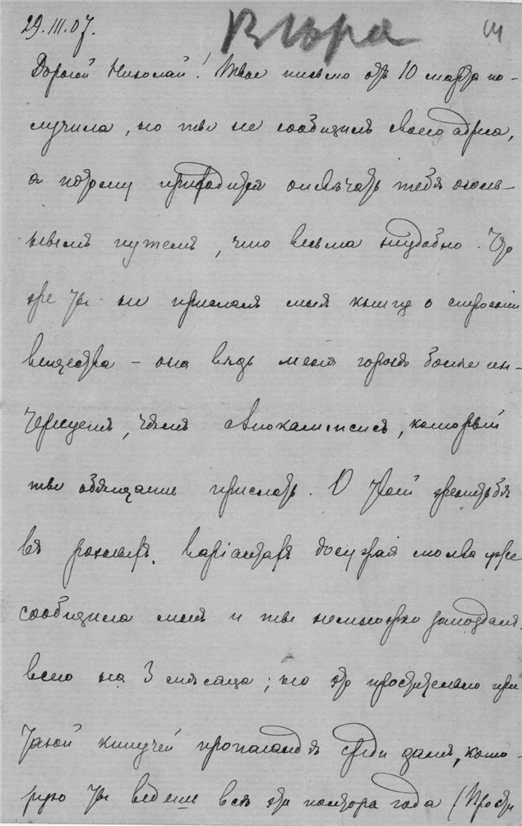 29.III.07.
Вѣра
Дорогой Николай! Твое письмо отъ 10 марта по-
лучила, но ты не сообщилъ своего адреса,
а потому приходится отвѣчать тебѣ околь-
нымъ путемъ, что весьма неудобно. Что
же ты не прислалъ мнѣ книгу о строеніи
вещества – она вѣдь меня гораздо больше ин-
тересуетъ, чѣмъ Апокалипсисъ, который
ты обѣщаешь прислать. О твоей женитьбѣ
въ разныхъ варіантахъ досужая молва уже
сообщила мнѣ и ты немножко запоздалъ,
всего на 3 мѣсяца; но это простительно при
такой кипучей пропагандѣ среди дамъ, кото-
рую ты ведешь всѣ эти полтора года (Прости